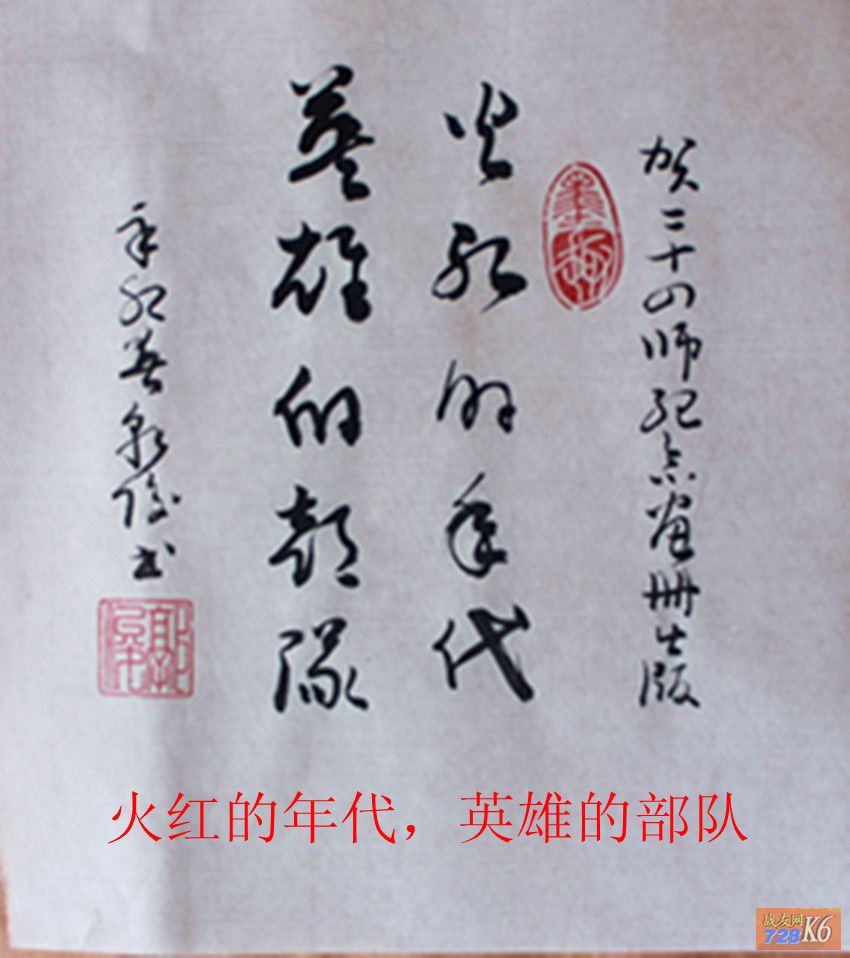 贺二十四师纪念画册出版
火红的年代
英雄的部队
书
火红的年代，英雄的部队
战友网
728K6